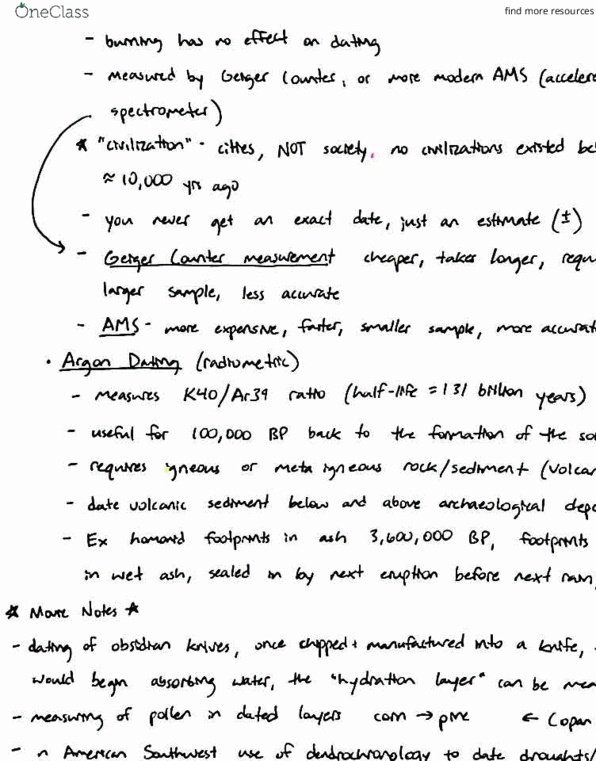 OneClass
find more resources
- burning has no effect on dating
- measured by Geiger Counter, or more modern AMS (acceler
spectrometer)
* "civilization" - cities, NOT society, no civilizations existed be
≈ 10,000 yrs ago
- you never get an exact date, just an estimate (±)
- Geiger Counter measurement cheaper, takes longer, requ
larger sample, less accurate
- AMS - more expensive, faster, smaller sample, more accurat
• Argon Dating (radiometric)
- measures K40/Ar39 ratio (half-life = 1.31 billion years)
- useful for 100,000 BP back to the formation of the so
- requires igneous or meta igneous rock/sediment (volca
- date volcanic sediment below and above archaeological depo
- Ex homanid footprints in ash 3,600,000 BP, footprints
in wet ash, sealed in by next eruption before next rain,
* More Notes *
- dating of obsidian knives, once chipped + manufactured into a knife,
would begin absorbing water, the "hydration layer" can be mea
- measuring of pollen in dated layers corn → pine ← Copan
- in American Southwest use of dendrochronology to date droughts/